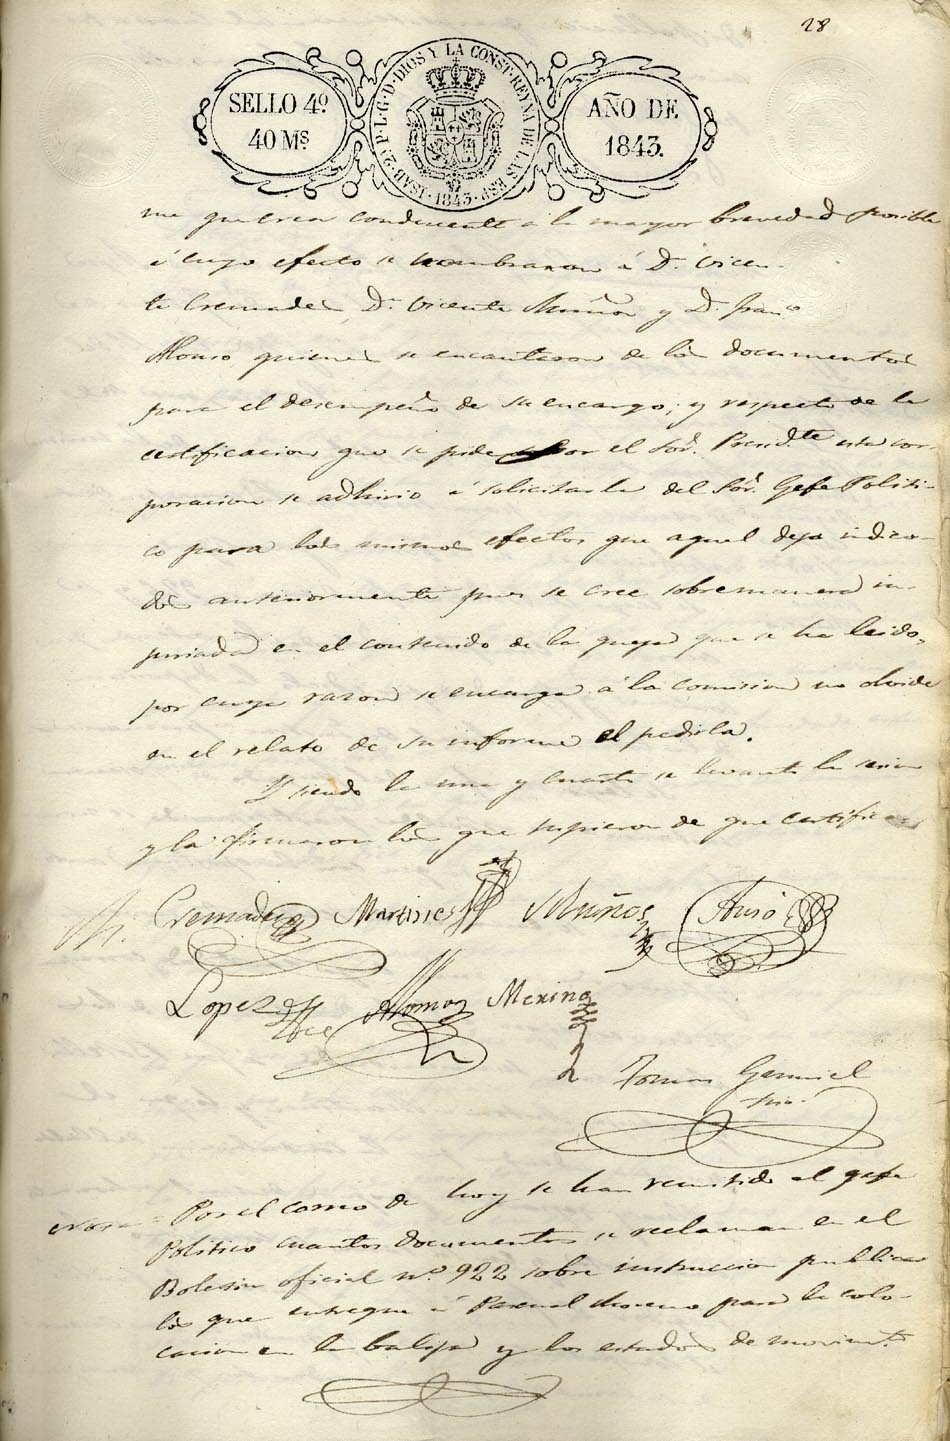 28
SELLO 4º
40 Mˢ
ISAB. 2ª P. L. G. D. DIOS Y LA CONST. REYNA DE LAS ESP. 1843.
AÑO DE
1843.
me que crea conducente á la mayor brevedad posible
á cuyo efecto se nombraron á Dⁿ. Vicen-
te Cremades, Dⁿ. Vicente Muñoz y Dⁿ. Franᶜᵒ
Alonso quienes se encantaron de los documentos
para el desempeño de su encargo; y respecto de la
certificacion que se pide por el Sor. Presidᵗᵉ esta cor-
poracion se adhirio á solicitarla del Sor. Gefe Politi-
co para los mismos efectos que aquel deja indica-
dos anteriormente pues se cree sobremanera in-
juriada en el contenido de la queja que se ha leido,
por cuya razon se encarga á la comision no olvide
en el relato de su informe el pedirla.
Y siendo la una y cuarto se levantó la sesion
y la firmaron los que supieron de que certifico
Cremades Martines Muños Ausó
Lopez Merino
Tomas
Srio.
Nota = Por el correo de hoy se han remitido al gefe
Politico cuantos documentos se reclaman en el
Boletin oficial nº 922 sobre instruccion publica
los que entregue á Pascual Moreno para la colo-
cacion en la balija y los estados de movimᵗᵒ